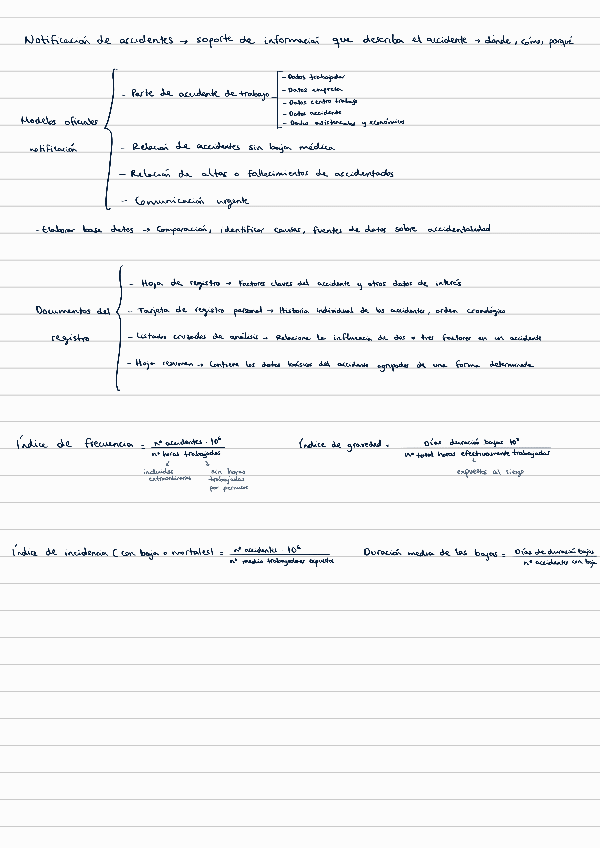 Notificación de accidentes → soporte de información que describa el accidente → dónde, cómo, porqué
Modelos oficiales notificación
- Parte de accidente de trabajo
- Datos trabajador
- Datos empresa
- Datos centro trabajo
- Datos accidente
- Datos asistenciales y económicos
- Relación de accidentes sin baja médica
- Relación de altas o fallecimientos de accidentados
- Comunicación urgente
- Elaborar base datos → Comparación, identificar causas, fuentes de datos sobre accidentalidad
Documentos del registro
- Hoja de registro → Factores claves del accidente y otros datos de interés
- Tarjeta de registro personal → Historia individual de los accidentes, orden cronológico
- Listados cruzados de análisis → Relacione la influencia de dos o tres factores en un accidente
- Hoja resumen → Contiene los datos básicos del accidente agrupados de una forma determinada
Índice de frecuencia = nº accidentes · 10⁶ / nº horas trabajadas
incluidas extraordinarias
sin horas trabajadas por permisos
Índice de gravedad = Días duración bajas 10³ / nº total horas efectivamente trabajadas
expuestos al riesgo
Índice de incidencia (con baja o mortales) = nº accidentes 10⁶ / nº medio trabajadores expuestos
Duración media de las bajas = Días de duración bajas / nº accidentes con baja